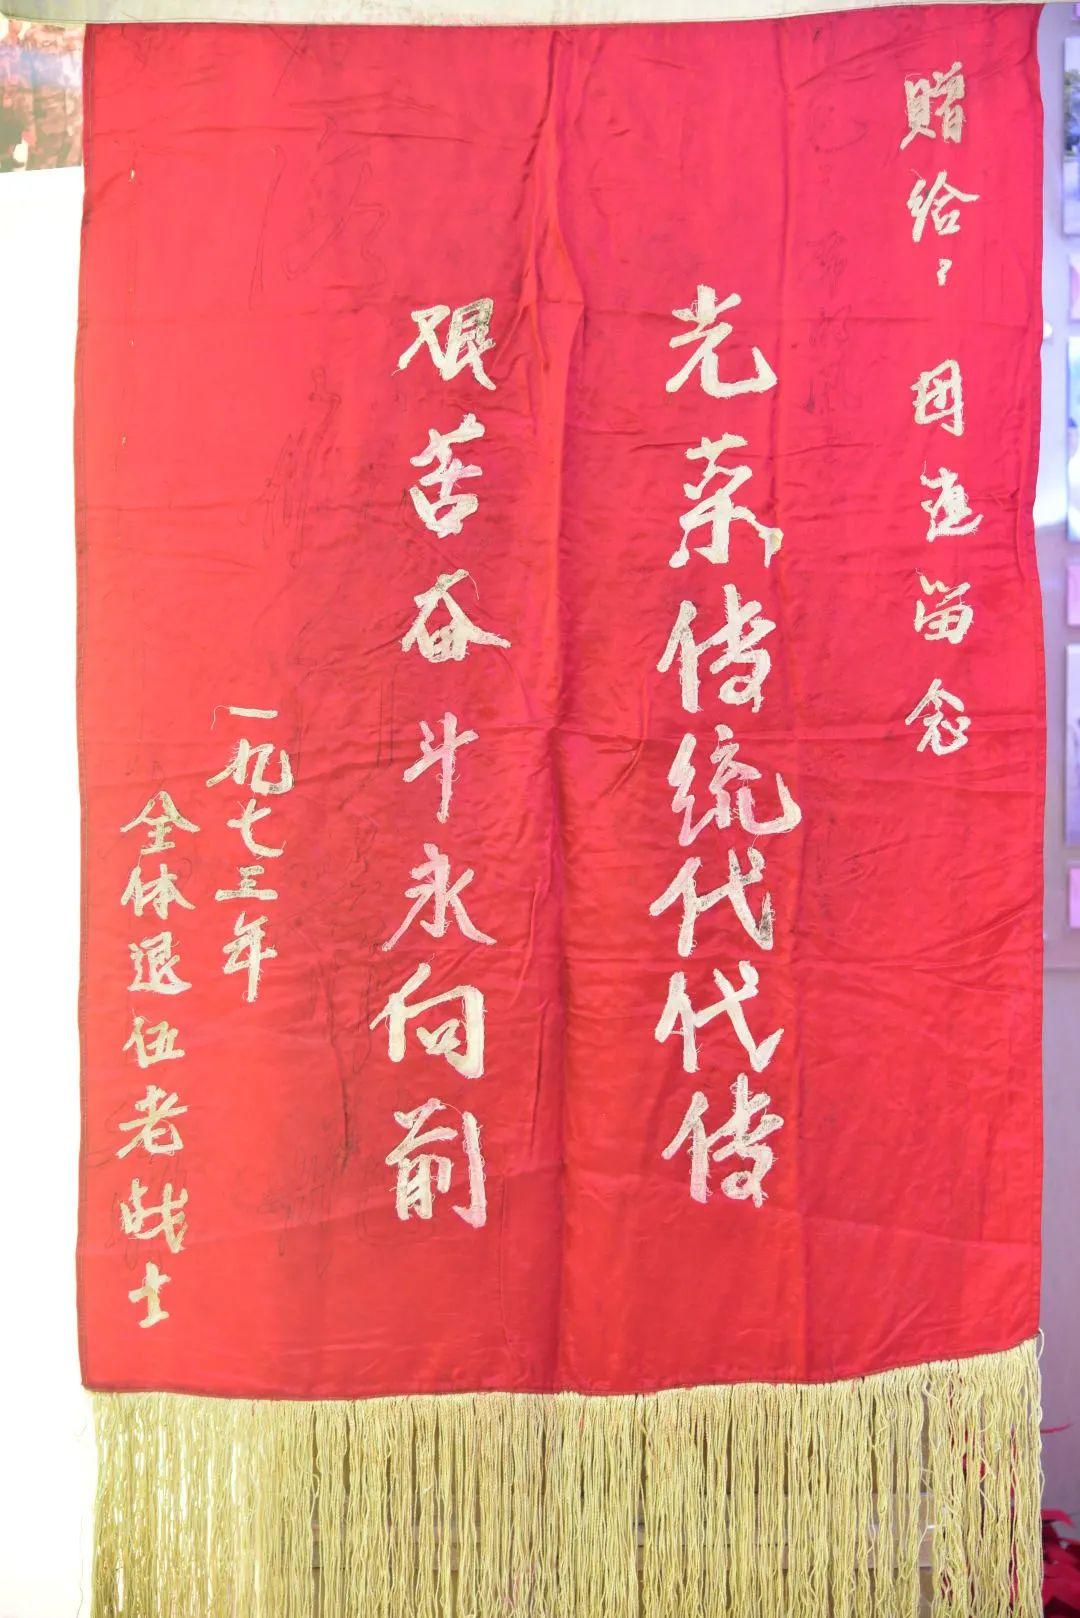 赠给：团直留念
光荣传统代代传
艰苦奋斗永向前
一九七三年
全体退伍老战士